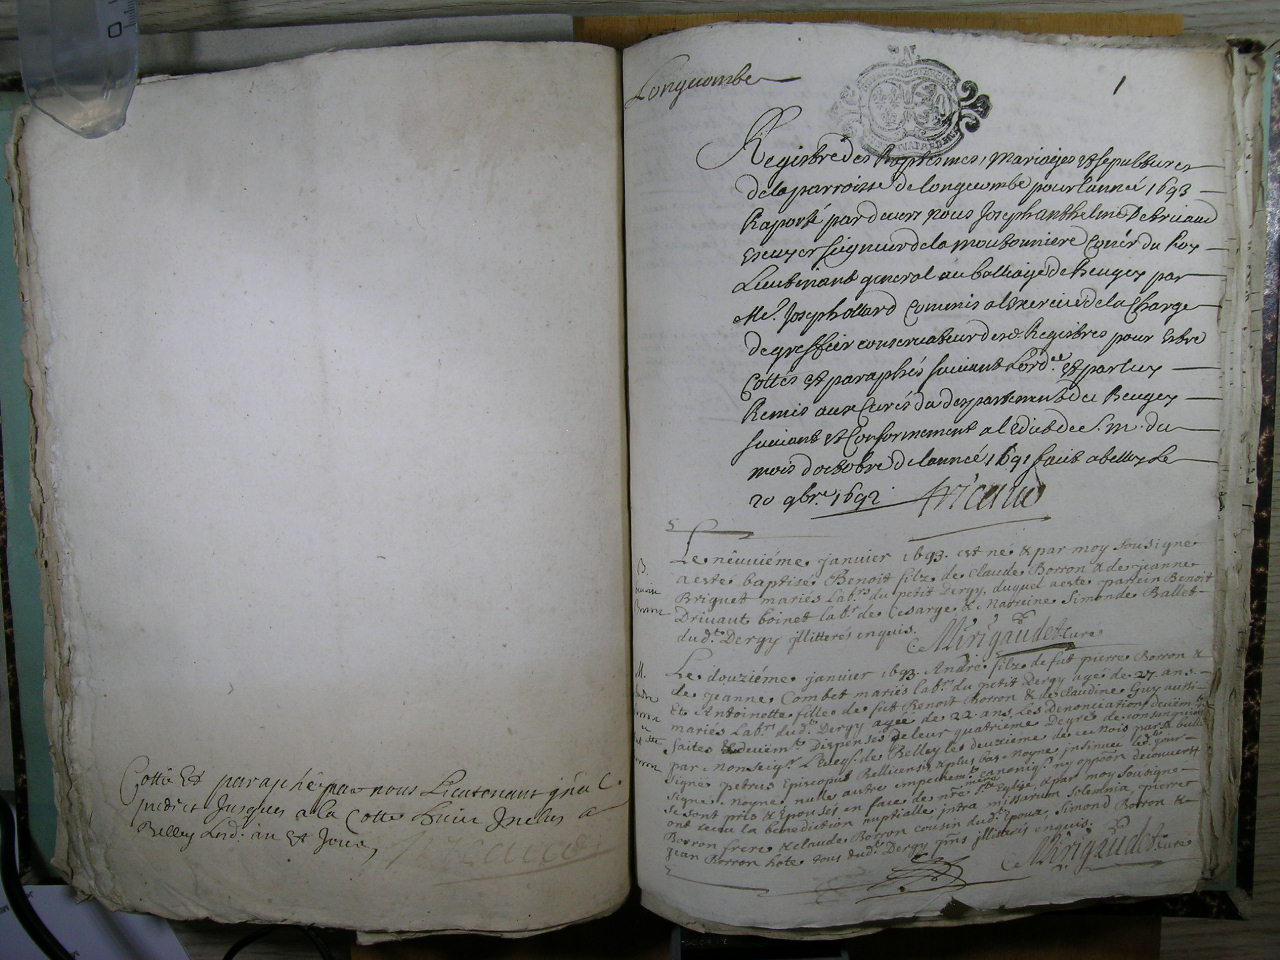 Cotté et paraphé par nous Lieutenant gñal
susdit jusques a la Cotte huict Inclus a
Belley led. an et jour,
Longecombe
1
Registre des Baptesmes, Mariages et sepultures
de la parroisse de longecombe pour lanneé 1693
Raporté par devers nous Joseph Anthelme De
Escuyer seigneur de la Moutonniere Coñer du Roy
Lieutenant general au balliage de Beugey par
Me. Joseph ollard Commis a lexercice de la Charge
de greffier conservateur desd. Registres pour estre
Cottés et paraphés suivant Lord.e et par luy
Remis aux Curés du despartement de Beugey
suivant et Conformement a l Edict de S. M. du
mois d octobre de lanneé 1691 faict a belley Le
20 9bre. 1692
B.
Le neuviéme janvier 1693. est né & par moy sousigne
a este baptise Benoit filz de Claude Borron & de jeanne
Briquet mariés Lab.rs du petit Dergy, duquel a este parrein Benoit
Drivant boinet lab.r de Cesarge & Marreine Simonde Ballet
dud.t Dergy jllitterés enquis. Mirigaudet Cure
M.
Le douziéme janvier 1693. André filz de fut pierre Borron &
de jeanne Combet mariés lab.rs du petit Dergy agé de 27. ans.
Et Antoinette fille de fut Benoit Borron & de Claudine Guy aussi
mariés Lab.rs dud.t Dergy agee de 22. ans, les Denonciations deuem.t
faites & deuem.t Dispensés de leur quatrieme Degré de consanguinité
par Monseig.r L'eveq. de Belley le deuxieme de ce mois par sa bulle
signée petrus Episcopus Bellicensis & plus bas Noyne, insinuée led.t jour
signe Noyne, nulle autre impechem.t canoniq. ny oppõon decouvert
se sont pris & Epousés en face de nr̃e mere s.te Eglise & par moy sousigne
ont receu la benediction nuptialle intra missarum solemnia, pierre
Borron frere & claude Borron cousin dud.t Epoux, Simond Borron &
jean Borron hote tous dud.t Dergy pñs jlliteris enquis.
Mirigaudet Cure